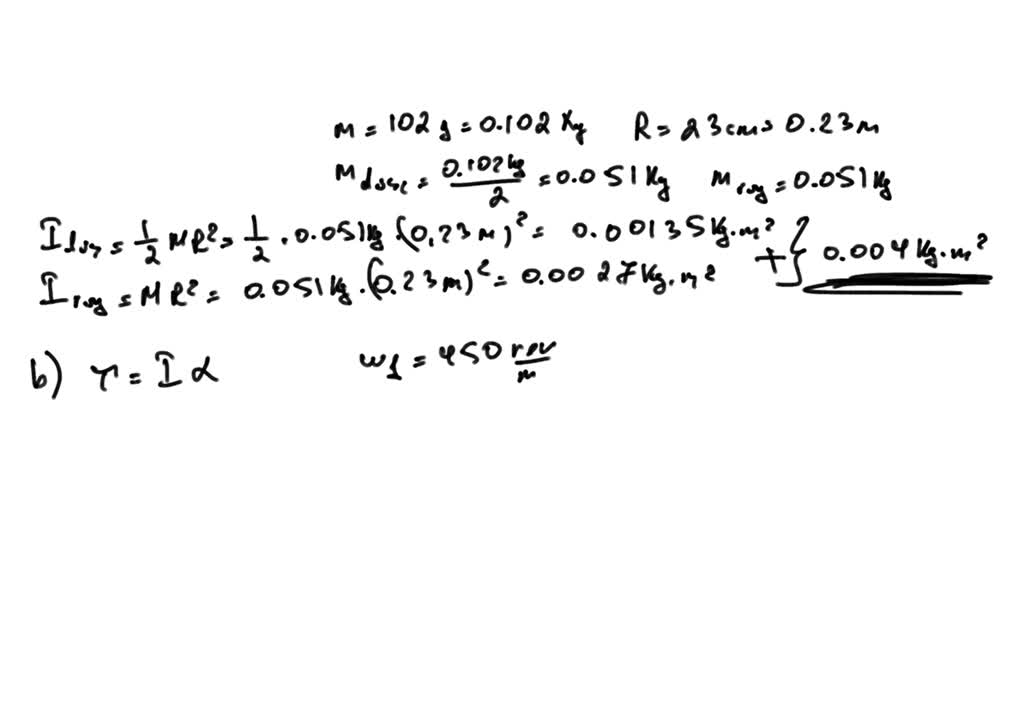 m = 102 g = 0.102 Kg R = 23 cm = 0.23 m
M disc = 0.102 kg / 2 = 0.051 Kg M ring = 0.051 kg
I disk = 1/2 MR² = 1/2 . 0.051 kg . (0.23 m)² = 0.00135 kg.m²
+ } 0.004 Kg.m²
I ring = MR² = 0.051 kg . (0.23 m)² = 0.0027 Kg.m²
b) τ = I α ω_f = 450 rev/m